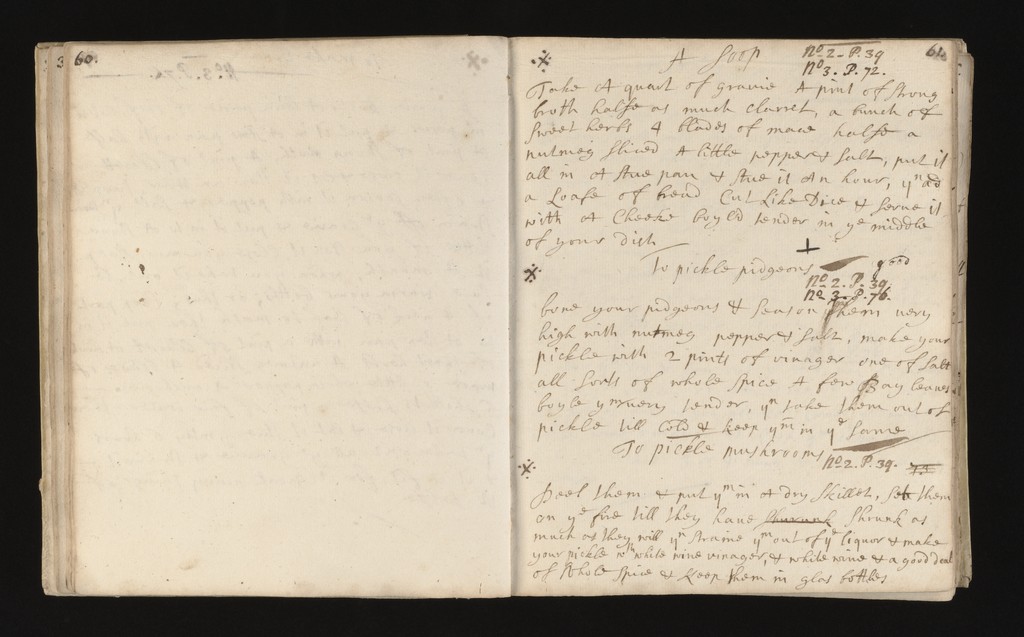 3 60.
61.
A Soop
No 2 - P. 39
No 3. P. 72.
Take A quart of gravie A pint of strong
broth halfe as much clarret, a bunch of
sweet herbs 4 blades of mace halfe a
nutmeg sliced A little pepper & salt, put it
all in A stue pan & stue it An hour, yn add
a Loafe of bread Cut Like Dice & serve it
with A Cheeke boyld tender in ye middle
of your dish
To pickle pidgeons
good
No 2. P. 39.
No 3. P. 76.
bone your pidgeons & season them very
high with nutmeg pepper & salt, make your
pickle with 2 pints of vinager one of salt
all sorts of whole spice A few Bay leaves
boyle ym very tender, yn take them out of
pickle till Cold & keep ym in ye same
To pickle mushrooms
No 2. P. 39.
Peel them & put ym in A dry skillet, set them
on ye fire till they have shrunk shrunk as
much as they will yn straine ym out of ye liquor & make
your pickle wth white wine vinager, & white wine & a good deal
of whole spice & keep them in glas bottles